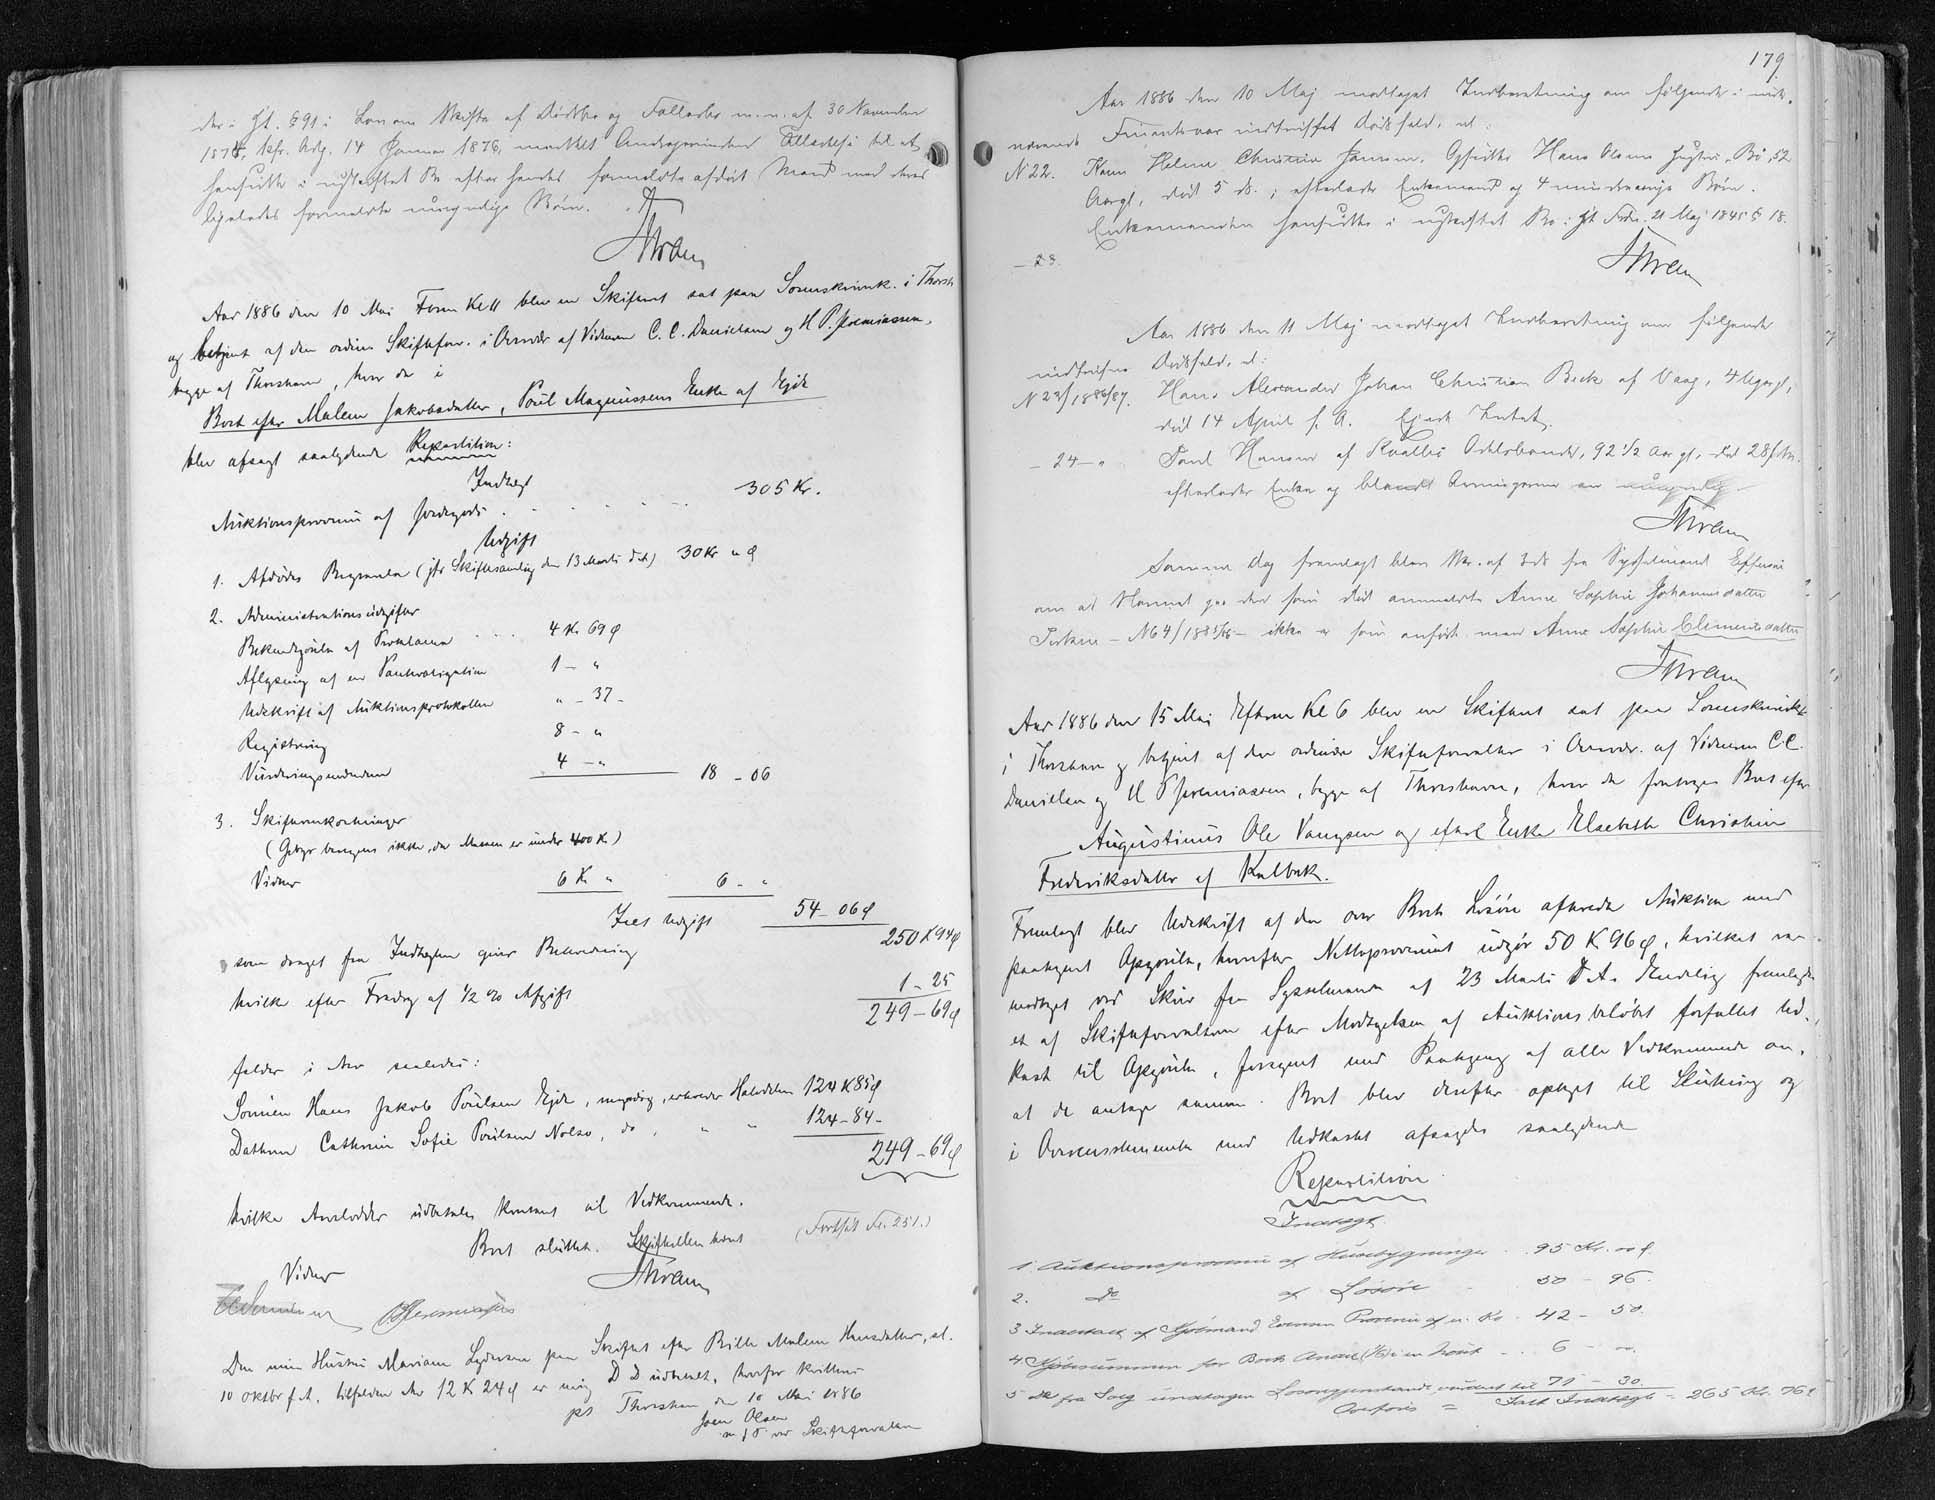 der i Hht. § 91 i Lov om Skifte af Dødsbo og Fællesbo m. m. af 30 November
1874, kfr. Adg. 14 Januar 1876, meddelt Andragerinden Tilladelse til at
hensidde i uskiftet Bo efter hendes formeldte afdøde Mand med deres
ligeledes formeldte umyndige Børn.
Aar 1886 den 10 Mai Form Kl 11 blev en Skifteret sat paa Sorenskriverk. i Thorsh
og betjent af den ordin Skifteforv. i Overvær af Vidnerne C. C. Danielsen og H. P. Jeremiassen,
begge af Thorshavn, hvor da i
Boet efter Malene Jakobsdatter, Poul Magnussens Enke af Ejde
blev afsagt saalydende Repartition:
Indtægt
Auktionsprovenu af Jordegods . . . . . . 305 Kr.
Udgift
1. Afdødes Begravelse (jfr Skiftesamling den 13 Marts d. A.) 30 Kr " Ø
2. Administrationsudgifter
Bekendtgørelse af Proklama . . . 4 Kr 69 Ø
Aflysning af en Panteobligation 1 - "
Udskrift af Auktionsprotokollen " - 37 -
Registrering 8 - "
Vurderingsmændene 4 - " 18 - 06
3. Skifteomkostninger
(Gebyr beregnes ikke, da Massen er under 400 Kr)
Vidner 6 Kr " 6 - "
Ialt Udgift 54 - 06 Ø
som draget fra Indtægten giver Beholdning 250 K 94 Ø
hvilke efter Fradrag af 1/2 % Afgift 1 - 25
249 - 69 Ø
falder i Arv saaledes:
Sønnen Hans Jakob Poulsen Ejde, myndig, erholder Halvdelen 124 K 85 Ø
Datteren Cathrine Sofie Poulsen Nolsø, do, " " 124 - 84 -
249 - 69 Ø
hvilke Arvelodder udbetales kontant til Vedkommende.
Boet sluttet. Skifteretten hævet (Fortsat Fo. 251.)
Vidner
Den min Hustru Mariane Lydersen paa Skiftet efter Bille Malene Hansdatter, sl.
10 Oktbr f. A. tilfaldne Arv 12 K 24 Ø er mig D D udbetalt, herfor kvitteres
pt Thorshavn den 10 Mai 1886
Joen Olsen
179
Aar 1886 den 10 Maj modtaget Indberetning om følgende i
nærværende Finantsaar indtruffet Dødsfald, nl:
N 22. Kone Helene Christine Jansen, Opsidder Hans Olsens Hustru, Bø, 52
Aargl, død 5 ds.; efterlader Enkemand og 4 mindreaarige Børn.
Enkemanden hensidder i uskiftet Bo i Hht Frdn. 21 Maj 1845 § 18.
- 23.
Aar 1886 den 11 Maj modtaget Indberetning om følgende
indtrufne Dødsfald, nl:
N 23/1886/87. Hans Alexander Johan Christian Beck af Vaag, 4 Ugergl,
død 14 April f. A. Ejede Intet.
- 24 - " Poul Hansen af Kvalbø Odelsbonde, 92 1/2 Aar gl, død 28 f. M.
efterlader Enke og blandt Arvingerne en umyndig
Samme Dag fremlagt blev Skr. af 3 ds fra Sysselmand Effersøe
om at Navnet paa den som død anmeldte Anne Sophie Johannesdatter
- N 64/1885/86 - ikke er som anført men Anne Sophie Clementsdatter
Aar 1886 den 15 Mai Efterm Kl 6 blev en Skifteret sat paa Sorenskriverk
i Thorshavn og betjent af den ordinære Skifteforvalter i Overvær. af Vidnerne C. C.
Danielsen og H P Jeremiassen, begge af Thorshavn, hvor da foretoges Boet efter
Augustinus Ole Vangsen og efterl Enke Elsebeth Christine
Frederiksdatter af Kalbak.
Fremlagt blev Udskrift af den over Boets Løsøre afholdte Auktion med
paategnet Opgørelse, hvorefter Nettoprovenuet udgør 50 K 96 Ø, hvilket var
modtaget ved Skriv fra Sysselmanden af 23 Marts d. A. Endelig fremlagdes
et af Skifteforvalteren efter Modtagelsen af Auktionsbeløbet forfattet Ud-
kast til Opgørelse, forsynet med Paategning af alle Vedkommende om,
at de antage samme. Boet blev derefter optaget til Slutning og
i Overensstemmelse med Udkastet afsagdes saalydende
Repartition
Indtægt.
1. Auktionsprovenu af Husebygninger . . 95 Kr. oo Ø
2. do af Løsøre . . 50 - 96.
3 . . . 42 - 50.
4 Kjøbesummen for Boets Andel (1/6) i en . . 6 - oo.
5 de fra Salg undtagne Løsøregjenstande vurderet til 71 - 30
Overføres = Ialt Indtægt = 265 Kr. 76 Ø